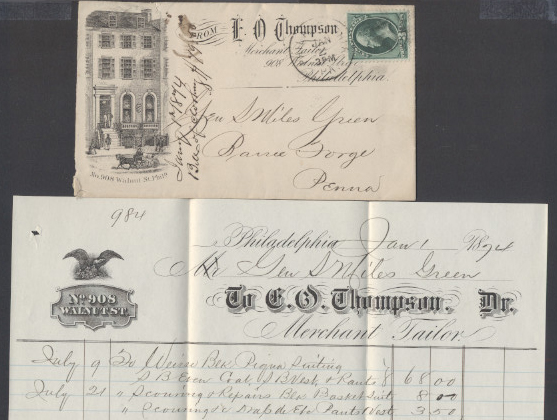 FROM E. O. Thompson,
Merchant Tailor,
908 Walnut Street,
Philadelphia.
JAN
3 PM
Jany 1st 1874
Gen S Miles Green
Barree Forge
Penna
No. 908 Walnut St. Phila
984
Philadelphia Jan 1 1874
Mr Gen S Miles Green
No 908 WALNUT ST.
To E. O. Thompson, Dr.
Merchant Tailor.
July 9 To Suiting
Coat, Vest, & Pants 68 00
July 21 " Scouring & Repairs Blk Basket Suit 8 00
" Scouring & Pants & Vest 3 50